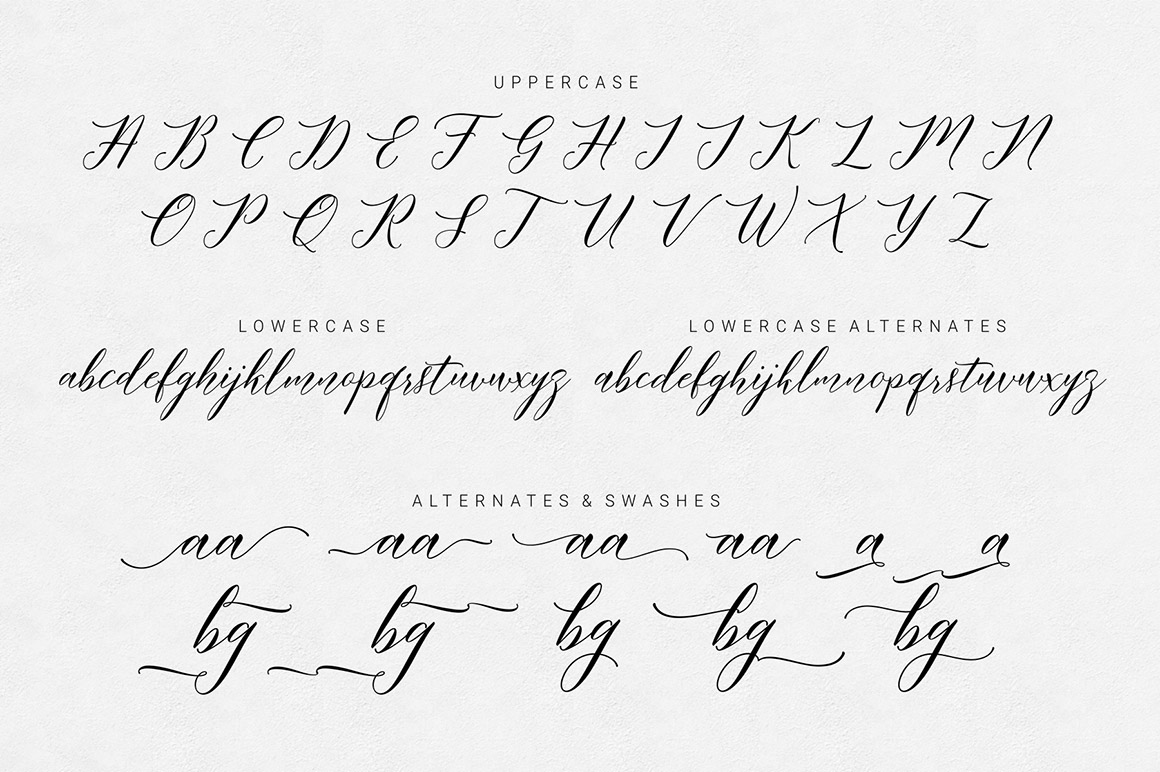 UPPERCASE
A B C D E F G H I J K L M N
O P Q R S T U V W X Y Z
LOWERCASE
LOWERCASE ALTERNATES
abcdefghijklmnopqrstuvwxyz
abcdefghijklmnopqrstuvwxyz
ALTERNATES & SWASHES
aa aa aa aa a a
bg bg bg bg bg